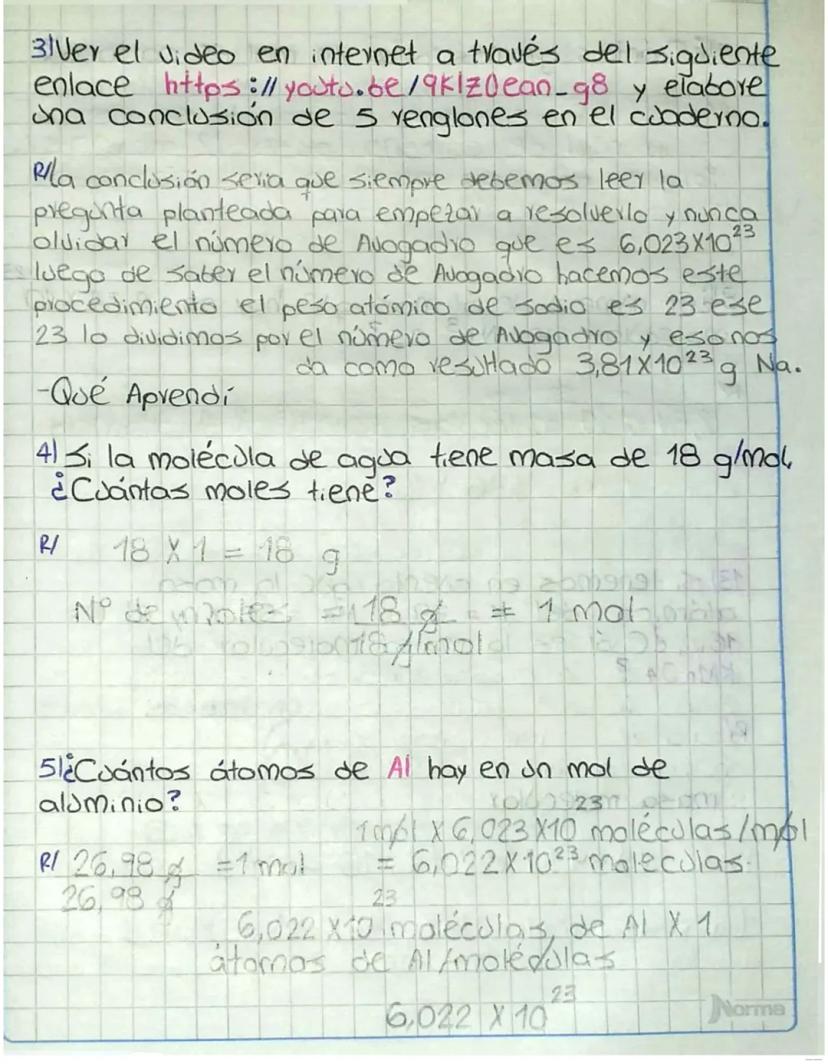 3) Ver el video en internet a través del siguiente
enlace https://youtu.be/9KlZ0ean_g8 y elabore
una conclusión de 5 renglones en el cuaderno.
R/ la conclusión seria que siempre debemos leer la
pregunta planteada para empezar a resolverlo y nunca
olvidar el número de Avogadro que es 6,023X10²³
luego de saber el número de Avogadro hacemos este
procedimiento el peso atómico de sodio es 23 ese
23 lo dividimos por el número de Avogadro y eso nos
da como resultado 3,81X10²³ g Na.
-Qué Aprendí
4) Si la molécula de agua tiene masa de 18 g/mol,
¿Cuántas moles tiene?
R/ 18 X 1 = 18 g
Nº de moles = 18 g = 1 mol
18 g/mol
5) ¿Cuántos átomos de Al hay en un mol de
aluminio?
1 mol X 6,023X10²³ moléculas/mol
R/ 26,98 g = 1 mol = 6,022X10²³ moleculas.
26,98 g
6,022 X10²³ moléculas, de Al X 1
átomos de Al/moléculas
6,022 X 10²³
Norma